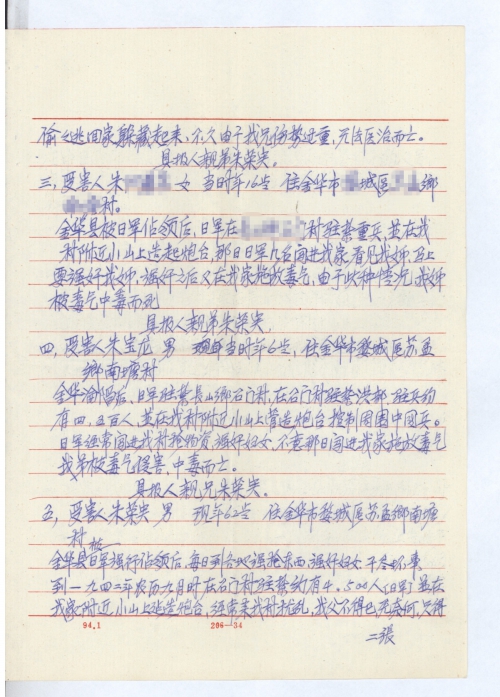 偷々逃回家躲藏起来，不久由于我兄伤势过重，无法医治而亡。
具报人親弟朱荣安。
三，受害人朱 女 当时年16岁 住金华市 城区 鄉
村。
金华县被日軍佔领后，日軍在 村駐紮重兵，並在我
村附近小山上造起炮台，那日日軍几名闯进我家看见我姊，马上
要强奸我姊，强奸之后又在我家施放毒气，由于此种情况，我姊
被毒气中毒而死
具报人親弟朱荣安，
四，受害人朱宝龙 男 当时年6岁，住金华市婺城区苏孟
鄉南塘村
金华淪陷后，日軍駐紮長山鄉石门村，在石门村駐紮 部 駐兵约
有四，五百人，並在我村附近小山上营造炮台控制周围中国兵。
日軍经常闯进我村抢物资，强奸妇女，不意那日闯进我家施放毒气
我弟被毒气侵害，中毒而亡。
具报人親兄朱荣安。
五，受害人朱荣安 男 现年62岁 住金华市婺城区苏孟鄉南塘
村
金华县被日軍强行佔领后，每日到各地强抢东西，强奸妇女，干尽坏事
到一九四二年农历九月时在石门村駐紮约有4，500人（日軍）並在
我家附近，小山上 造炮台，经常来我村扰乱，我父不得已，无奈何，只得
94.1 206—34
二張